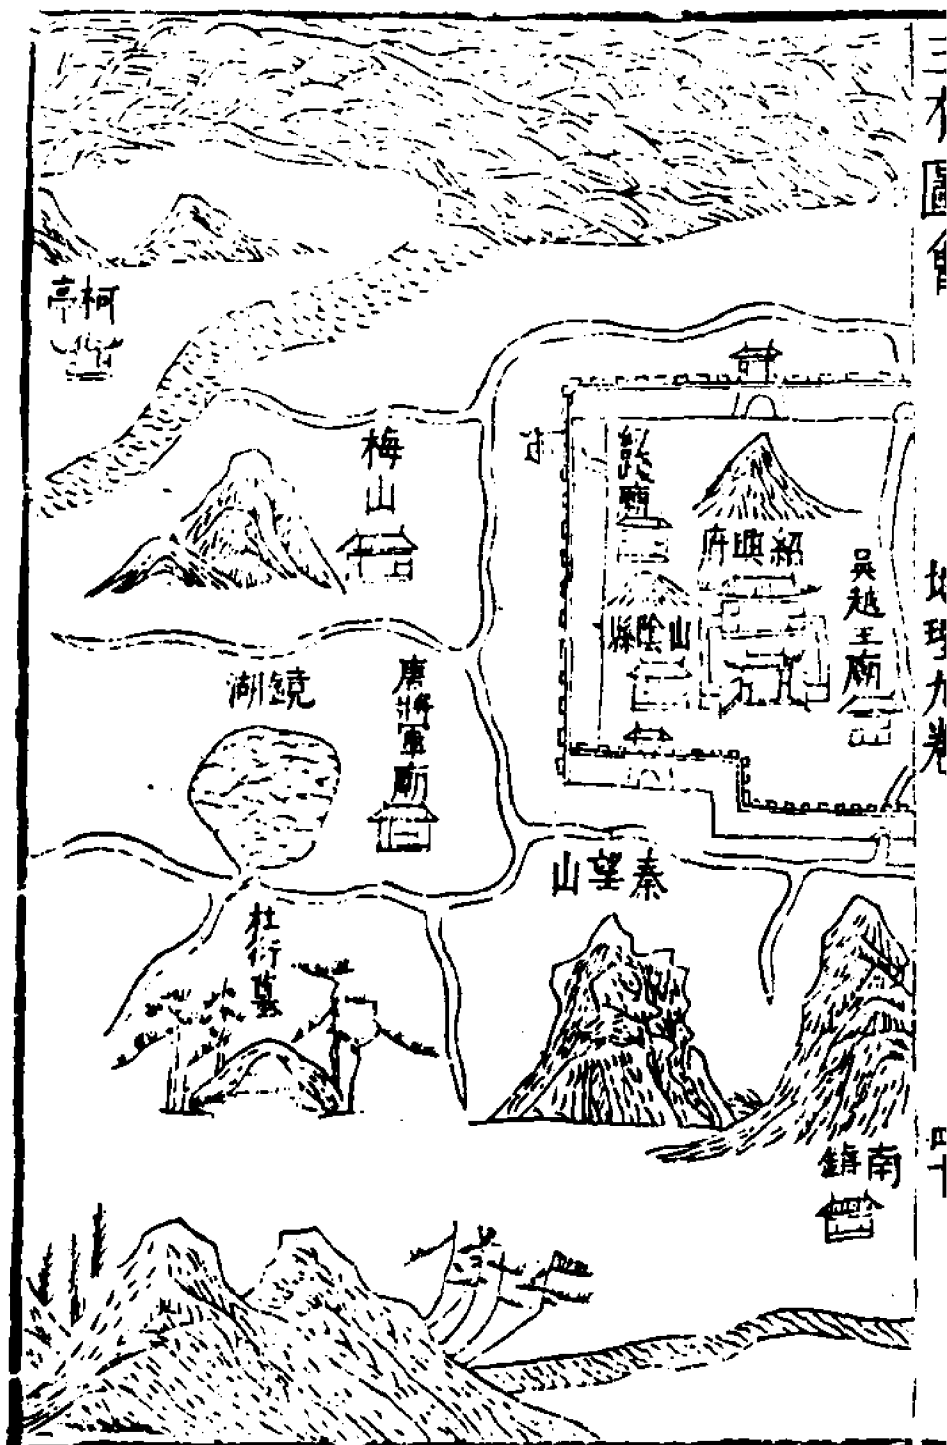 三才圖會
地理九卷
四十
柯亭
梅山
紹興府
山陰縣
吳越王廟
鏡湖
唐將軍廟
秦望山
杜衍墓
南鎮